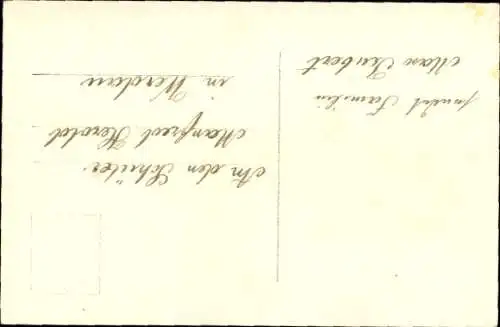 Max Seubert
nebst Familie
An den Schüler
Manfred Herold
in Werdau